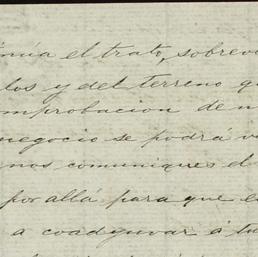 núa el trato, sobrev
los y del terreno q
omprobacion de n
negocio se podrá v
nos comuniques el
por allá para que e
a coadyuvar á tu